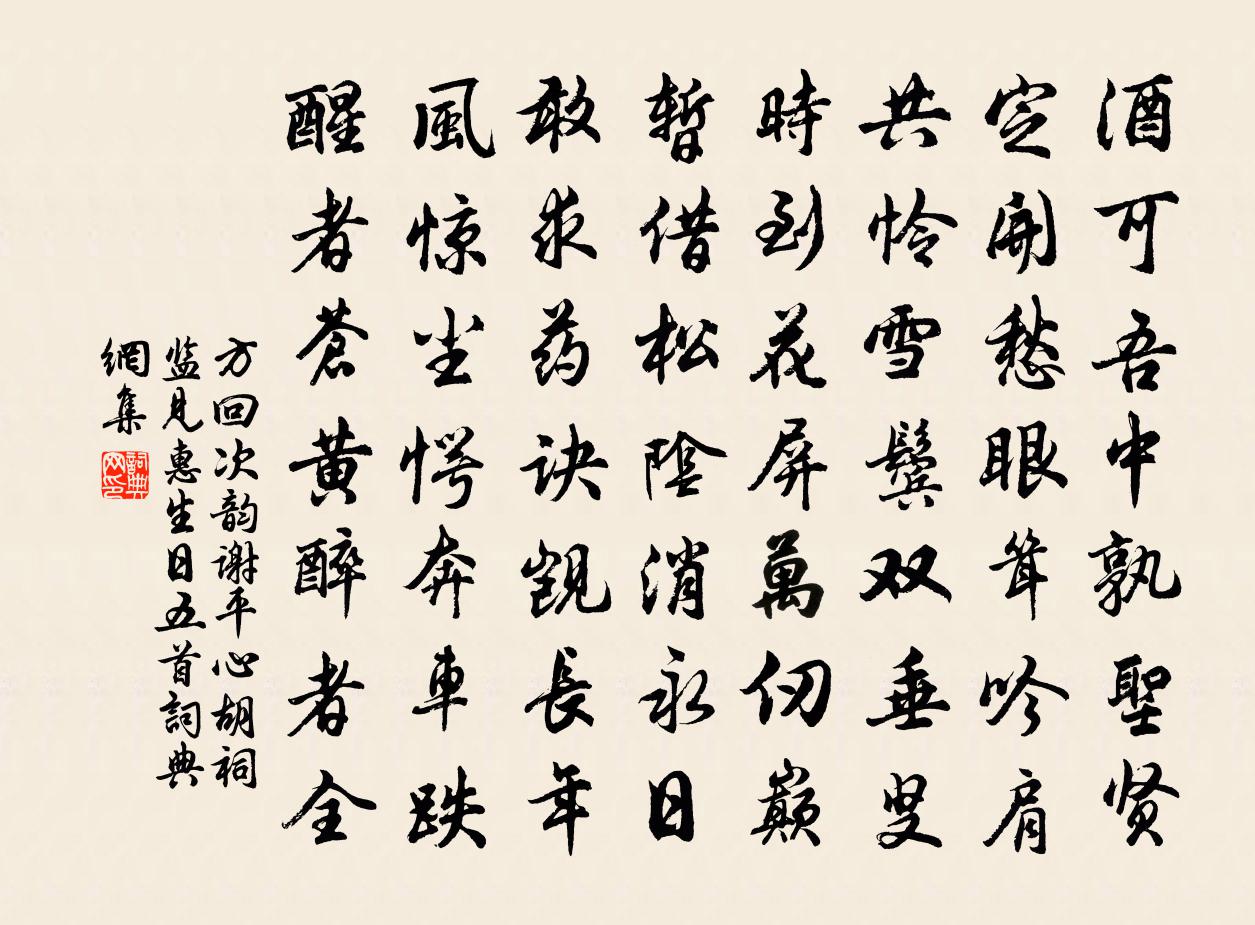 酒可吾中孰聖贤
定開愁眼耸吟肩
共怜雪鬓双垂叟
時到花屏萬仞巅
暫借松陰消永日
敢求药诀觊長年
風惊尘愕奔車跌
醒者蒼黄醉者全
方回次韵谢平心胡祠
监見惠生日五首詞典
網集
詞典网印